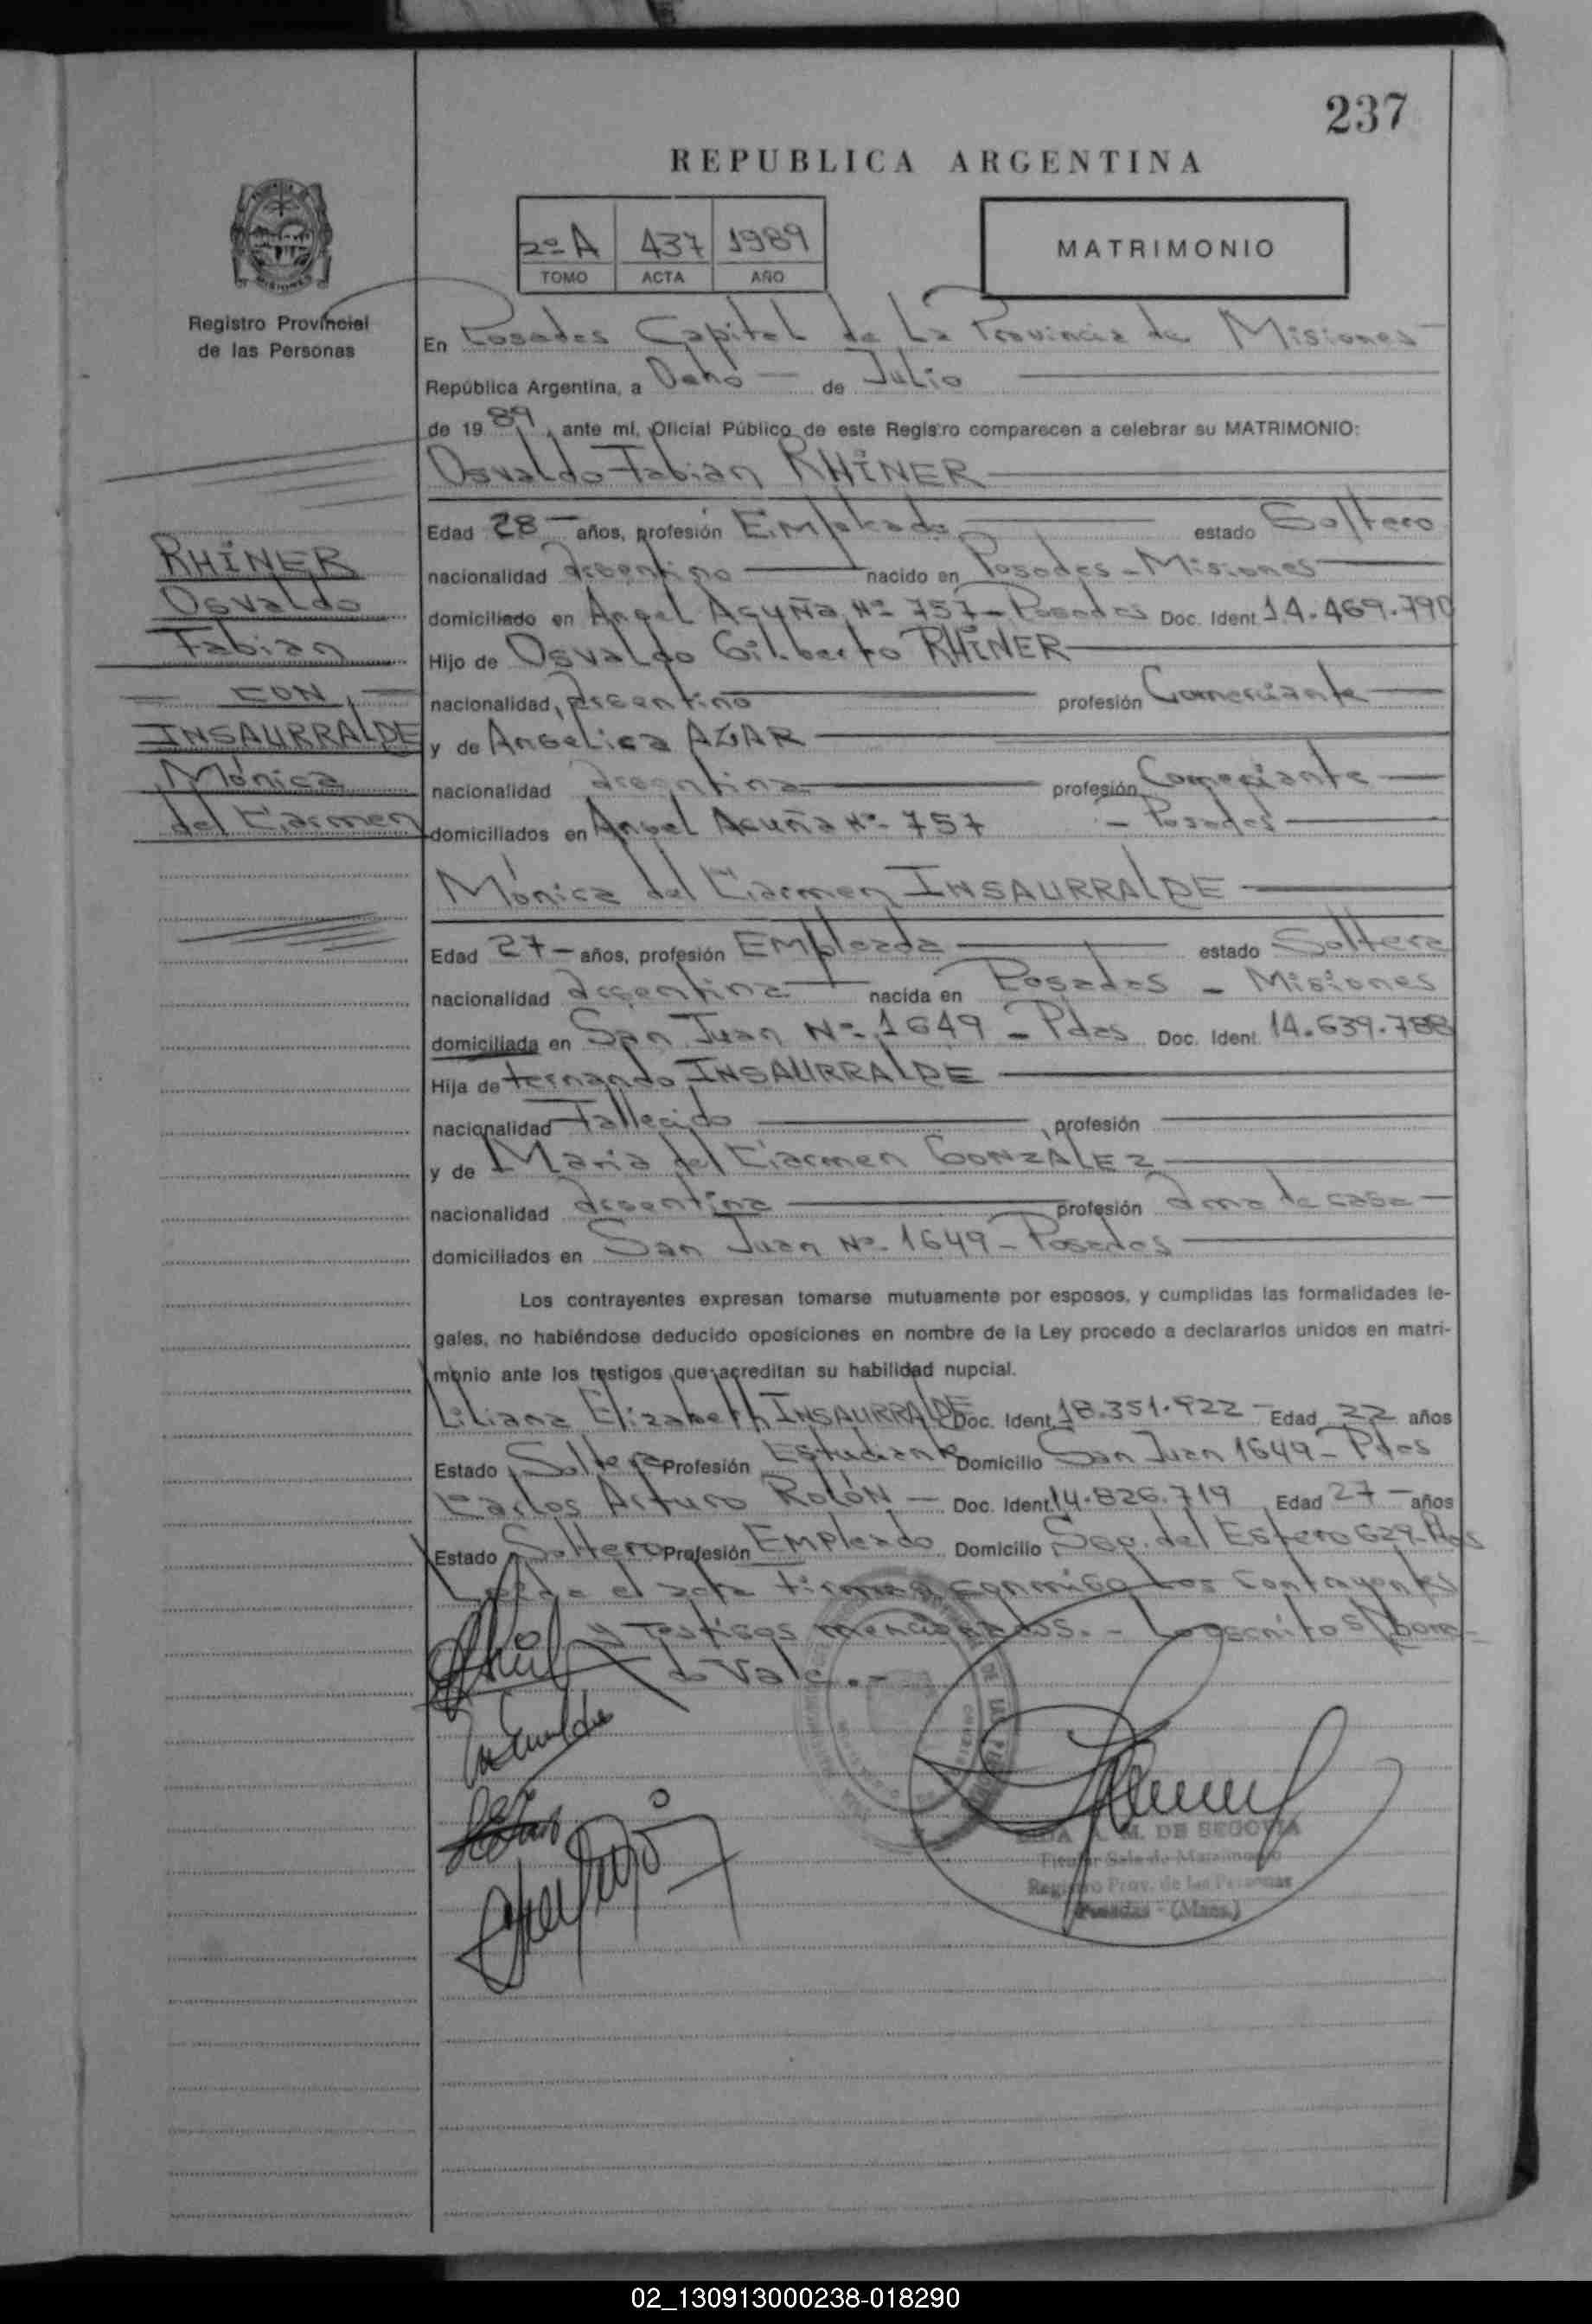 237
REPUBLICA ARGENTINA
2º A 437 1989
TOMO ACTA AÑO
MATRIMONIO
Registro Provincial
de las Personas
En Posadas Capital de La Provincia de Misiones
República Argentina, a Ocho — de Julio
de 1989, ante mí, Oficial Público de este Registro comparecen a celebrar su MATRIMONIO:
Osvaldo Fabian RHINER
Edad 28 — años, profesión Empleado estado Soltero
nacionalidad argentino nacido en Posadas - Misiones
domiciliado en Angel Acuña Nº 757 - Posadas Doc. Ident 14.469.790
Hijo de Osvaldo Gilberto RHINER
nacionalidad, argentino profesión Comerciante
y de Angelica AZAR
nacionalidad argentina profesión Comerciante
domiciliados en Angel Acuña Nº 757 - Posadas
RHINER
Osvaldo
Fabian
— CON —
INSAURRALDE
Mónica
del Carmen
Mónica del Carmen INSAURRALDE
Edad 27 — años, profesión Empleada estado Soltera
nacionalidad argentina nacida en Posadas - Misiones
domiciliada en San Juan Nº 1649 - Pdas Doc. Ident. 14.639.788
Hija de Fernando INSAURRALDE
nacionalidad Fallecido profesión
y de Maria del Carmen GONZALEZ
nacionalidad argentina profesión ama de casa
domiciliados en San Juan Nº 1649 - Posadas
Los contrayentes expresan tomarse mutuamente por esposos, y cumplidas las formalidades le-
gales, no habiéndose deducido oposiciones en nombre de la Ley procedo a declararlos unidos en matri-
monio ante los testigos que acreditan su habilidad nupcial.
Liliana Elizabeth INSAURRALDE Doc. Ident. 18.351.922 - Edad 22 años
Estado Soltera Profesión Estudiante Domicilio San Juan 1649 - Pdas
Carlos Arturo ROLÓN — Doc. Ident. 14.826.719 Edad 27 — años
Estado Soltero Profesión Empleado Domicilio Sgo. del Estero 629 - Pdas
Leida el acta firman conmigo Los contrayentes
y Testigos mencionados. - Lo escrito s/
Vale. -
A. M. DE SEGOVIA
Titular Sala de Matrimonio
Registro Prov. de las Personas
Posadas - (Mnes.)
02_130913000238-018290